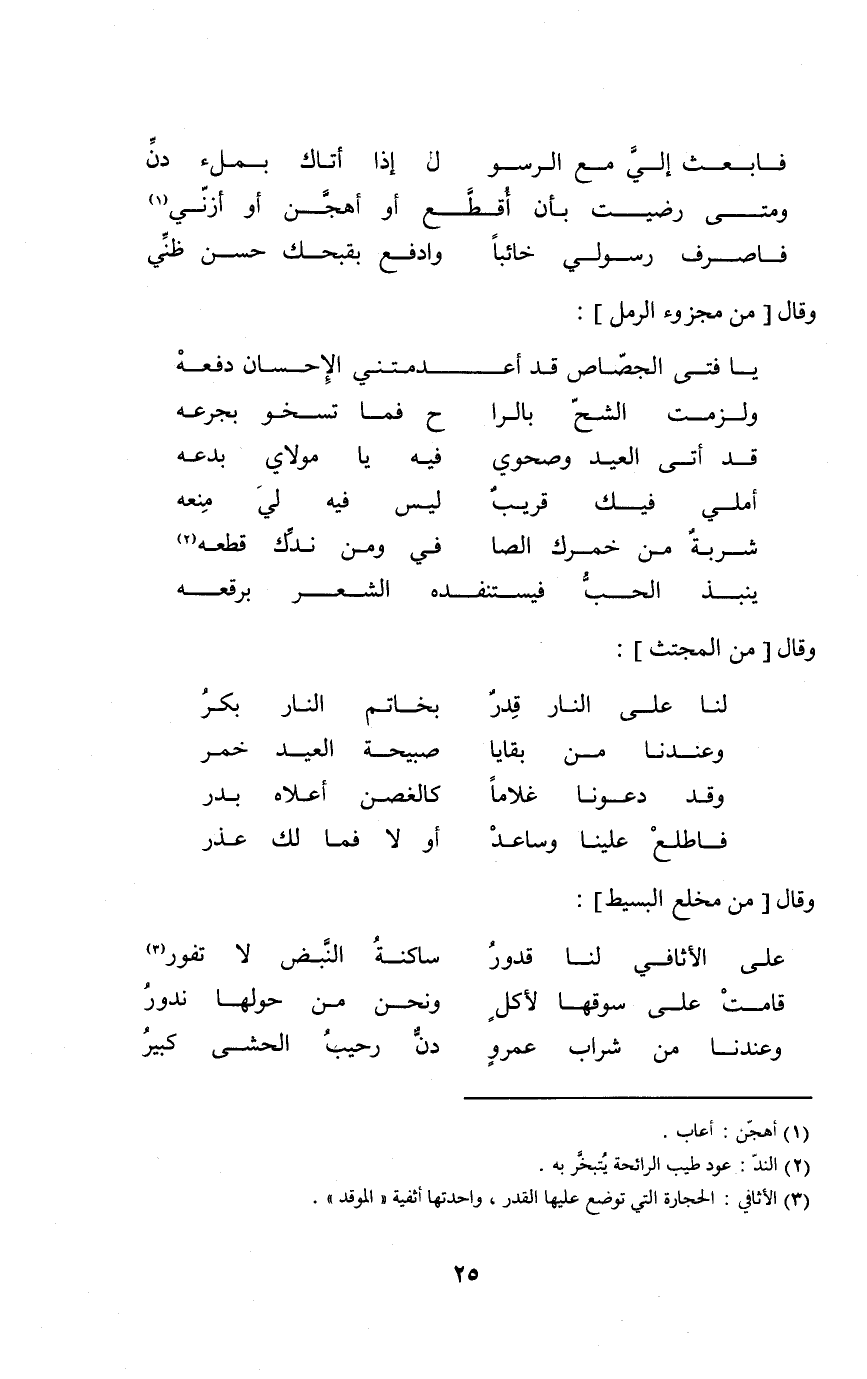 فابعث إليَّ مع الرسو ل إذا أتاك بملء دنِّ
ومتى رضيت بأن أُقطَّع أو أهجَّن أو أزنّي(١)
فاصرف رسولي خائباً وادفع بقبحك حسن ظنِّي
وقال [ من مجزوء الرمل ] :
يا فتى الجصّاص قد أعـ ـدمتني الإحسان دفعهْ
ولزمت الشحّ بالرا ح فما تسخو بجرعه
قد أتى العيد وصحوي فيه يا مولاي بدعه
أملي فيك قريبٌ ليس فيه ليَ مِنعه
شربةٌ من خمرك الصا في ومن ندِّك قطعه(٢)
ينبذ الحبُّ فيستنفده الشعر برقعه
وقال [ من المجتث ] :
لنا على النار قِدرٌ بخاتم النار بكرُ
وعندنا من بقايا صبيحة العيد خمر
وقد دعونا غلاماً كالغصن أعلاه بدر
فاطلعْ علينا وساعدْ أو لا فما لك عذر
وقال [ من مخلع البسيط] :
على الأثافي لنا قدورُ ساكنةُ النَّبض لا تفور(٣)
قامتْ على سوقها لأكلٍ ونحن من حولها ندورُ
وعندنا من شراب عمروٍ دنٌّ رحيبُ الحشى كبيرُ
(١) أهجّن : أعاب .
(٢) الندّ : عود طيب الرائحة يُتبخَّر به .
(٣) الأثافي : الحجارة التي توضع عليها القدر ، واحدتها أثفية « الموقد » .
٢٥